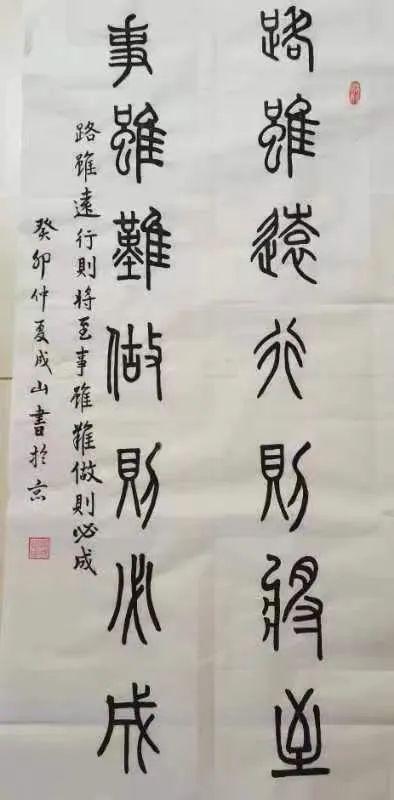 路雖遠行則將至
事雖難做則必成
路雖遠行則將至事雖難做則必成
癸卯仲夏成山書於京